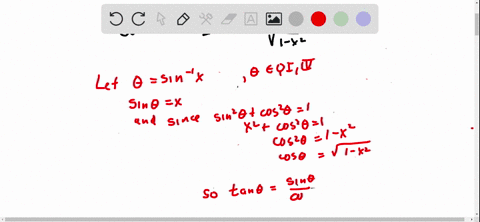 √1-x²
Let θ = sin⁻¹x , θ ∈ QI, IV
sinθ = x
and since sin²θ + cos²θ = 1
x² + cos²θ = 1
cos²θ = 1-x²
cosθ = √1-x²
so tanθ = sinθ/co